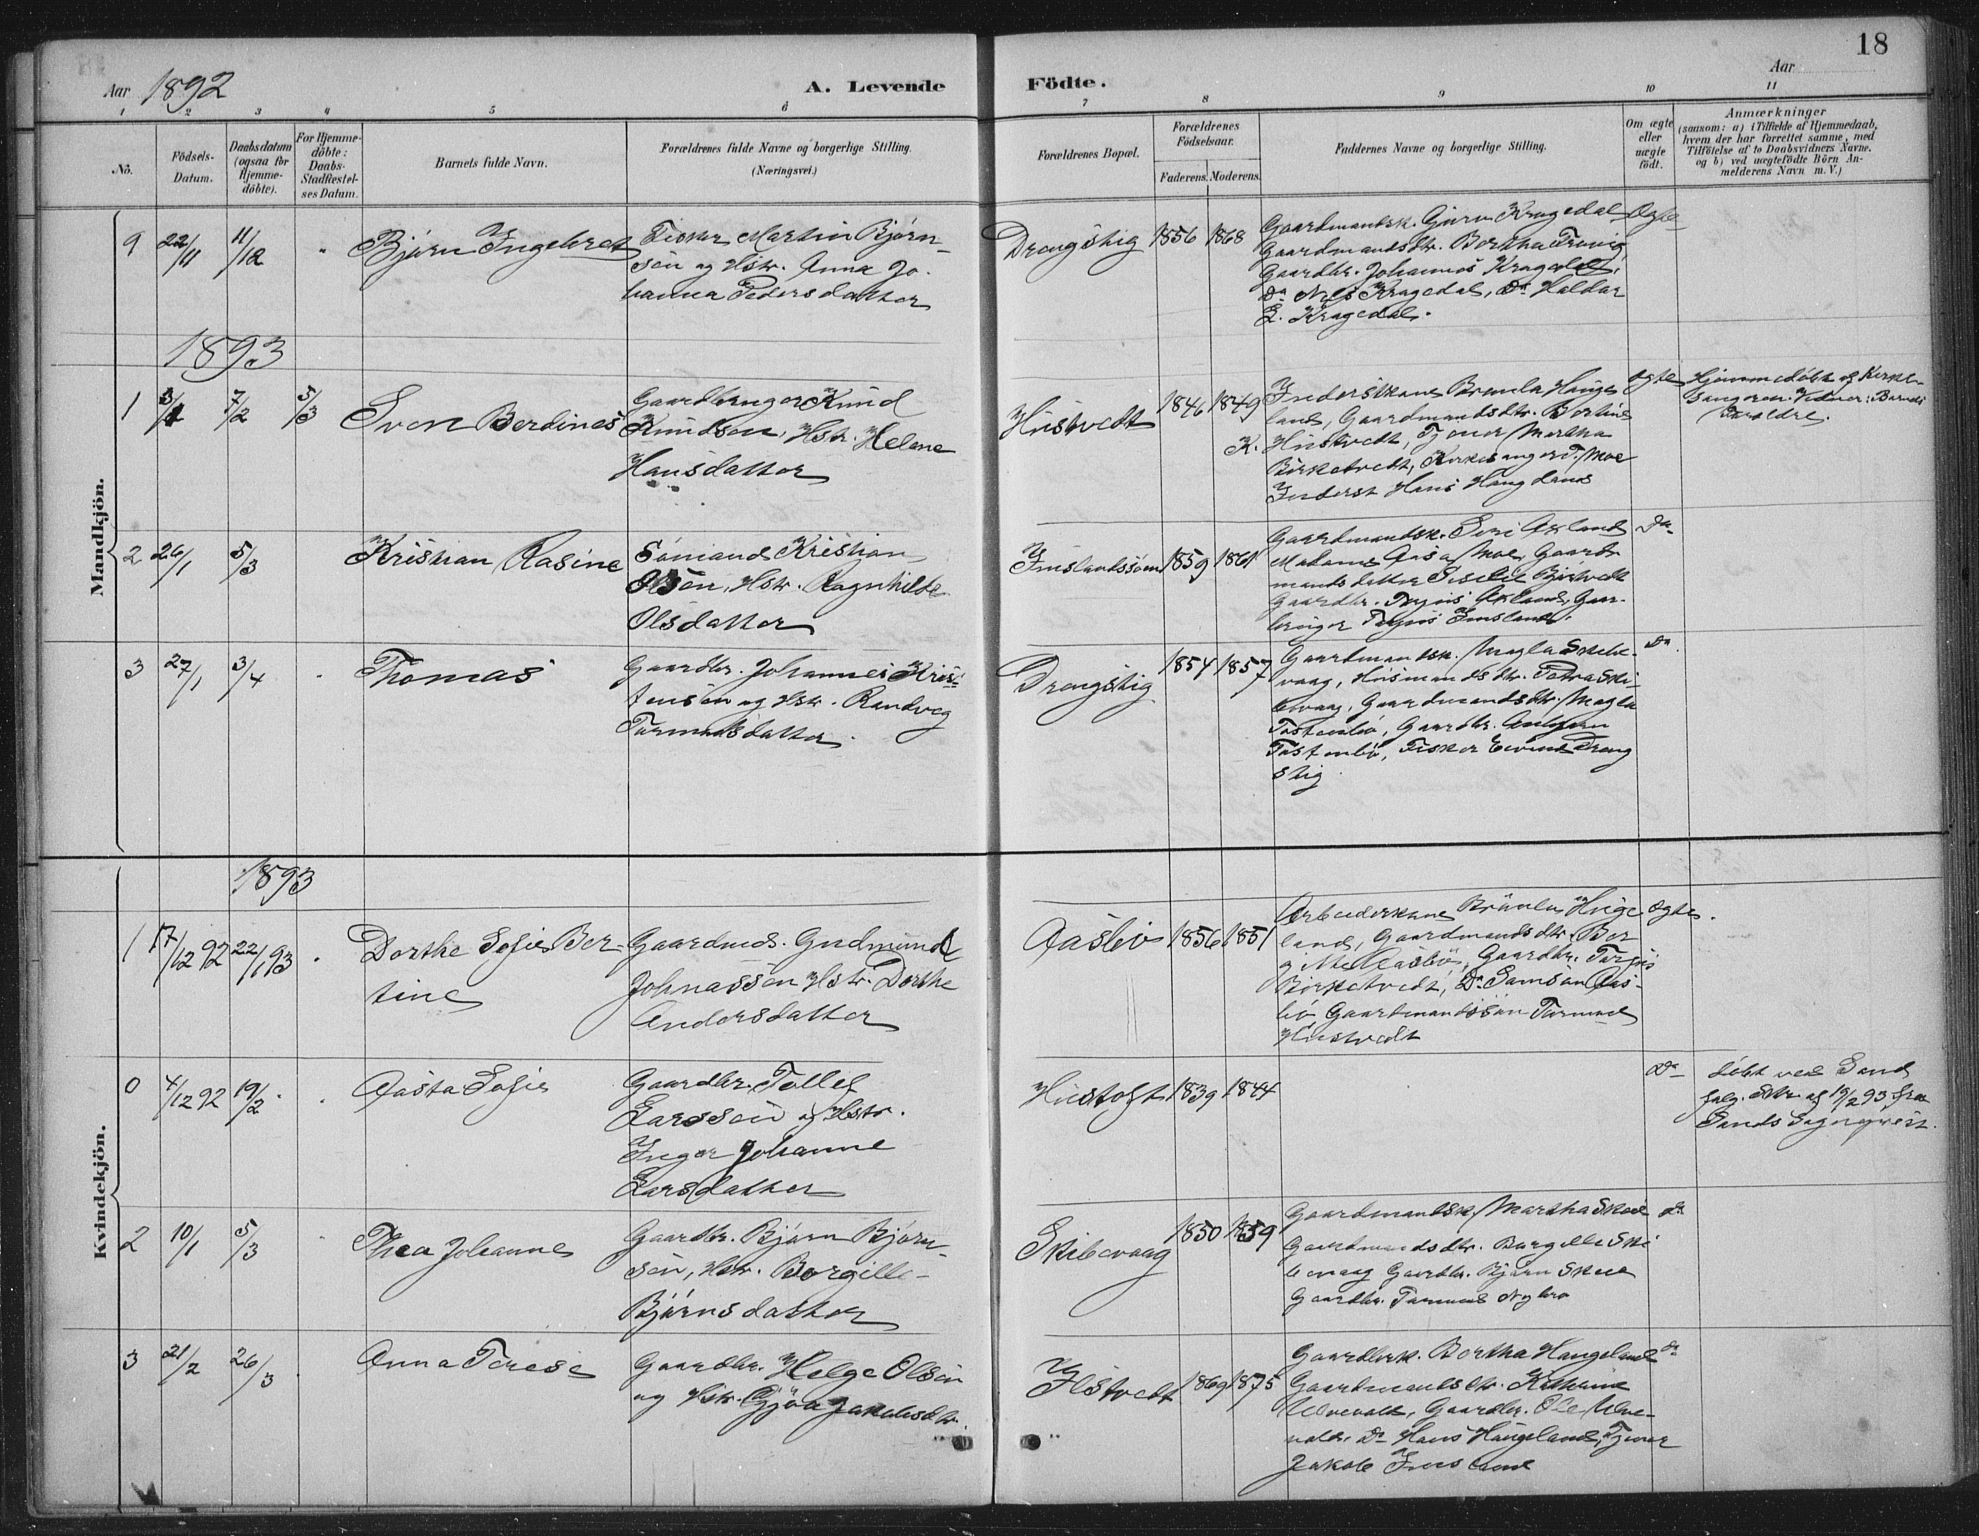 18
Aar 1892
A. Levende
Födte.
Aar
1 2 3 4 5 6 7 8 9 10 11
No.
Födsels-
Datum.
Daabsdatum
(ogsaa for
Hjemme-
döbte).
For Hjemme-
döbte:
Daabs-
Stadfæstel-
ses Datum.
Barnets fulde Navn.
Forældrenes fulde Navne og borgerlige Stilling.
(Næringsvei.)
Forældrenes Bopæl.
Forældrenes
Födselsaar.
Faderens. Moderens.
Faddernes Navne og borgerlige Stilling.
Om ægte
eller
uægte
födt.
Anmærkninger
(saasom: a) i Tilfælde af Hjemmedaab,
hvem der har forrettet samme, med
Tilföielse af to Daabsvidners Navne.
og b) ved uægtefödte Börn An-
melderens Navn m. V.)
Mandkjön.
9 22/11 11/12 "
Bjørn Ingebret
Fisker Martin Bjørn-
sen og Hstr. Anna Jo-
hanna Pedersdatter
Drengstig 1856 1868
Gaardmandsk. Gjøru Kragedal
Gaardmandsdtr. Bertha
Gaardbr. Johannes Kragedal,
Do Nils Kragedal, Do Haldor
L. Kragedal.
1893
1 7/2 5/3
Sven Berdines
Gaardbruger Knud
Knudsen, Hstr. Helene
Hansdatter
Hustvedt 1846 1849
Inderstkone Brynla Hauge
land, Gaardmandsdtr. Berline
K. Hustvedt, Tjener Martha
Birketvedt, Kirkesanger T. Moe
Inderst Hans Haugland
Ægte
Hjemmedöbt af Kirke-
sangeren. Vidner: Barnets
Forældre.
2 26/1 5/3
Kristian Rasine
Sömand Kristian
Olsön, Hstr. Ragnhilde
Olsdatter
1859 1861
Gaardmandsk. Siri Øxland
Madame Aasa Moe, Gaard-
mandsdatter
Gaardbr. Øxland, Gaar-
bruger
Do
3 27/1 3/4
Thomas
Gaardbr. Johannes Kris-
tensön og Hstr. Randveg
Tormodsdatter.
Drengstig 1854 1857
Gaardmandsk. Magla Skibe-
vaag, Husmandsdtr. Petra Ski-
bevaag, Gaardmandsdtr. Magla
Tostenbö, Gaardbr.
Tostenbö, Fisker Eivind Dreng
stig
Do
Kvindekjön.
1893
1 17/12 92 22/1 93
Dorthe Sofie Ber-
tine
Gaardmd. Gudmund
Johnassen Hstr. Dorthe
Andersdatter
Aasbö 1856 1851
Arbeiderkone Brönla Hauge
land, Gaardmandsdtr. Ber
Aasbö, Gaardbr. Torgis
Birketvedt, Do Samson Aas-
bö Gaardmandssön Tormod
Hustvedt
Ægte.
0 4/12 92 19/2
Aasta Sofie
Gaardbr. Tollef
Larssen og Hstr.
Inger Johanne
Larsdatter
Hustoft 1839 1844
Do
döbt ved Sand
fölg. Attr. af 19/2 93 fra
Sands Sogneprest.
2 10/1 5/3
Thea Johanne
Gaardbr. Bjørn Bjørn-
sön, Hstr. Borgille
Bjørnsdatter
Skibevaag 1850 1859
Gaardmandsk. Martha Skeie
Gaardmandsdtr. Borgille Ski
bevaag Gaardbr. Bjørn Skeie
Gaardbr. Tormod Nybro
Do
3 21/2 26/3
Anna Terese
Gaardbr. Helge Olsön
og Hstr. Gjöa Jakobsdtr.
Ilstvedt 1869 1875
Gaardbrk. Bertha Haugeland
Gaardmandsdtr.
Ulvevold, Gaardbr. Ole Ulve-
vold. Do Hans Haugeland, Tjener
Jakob
Do